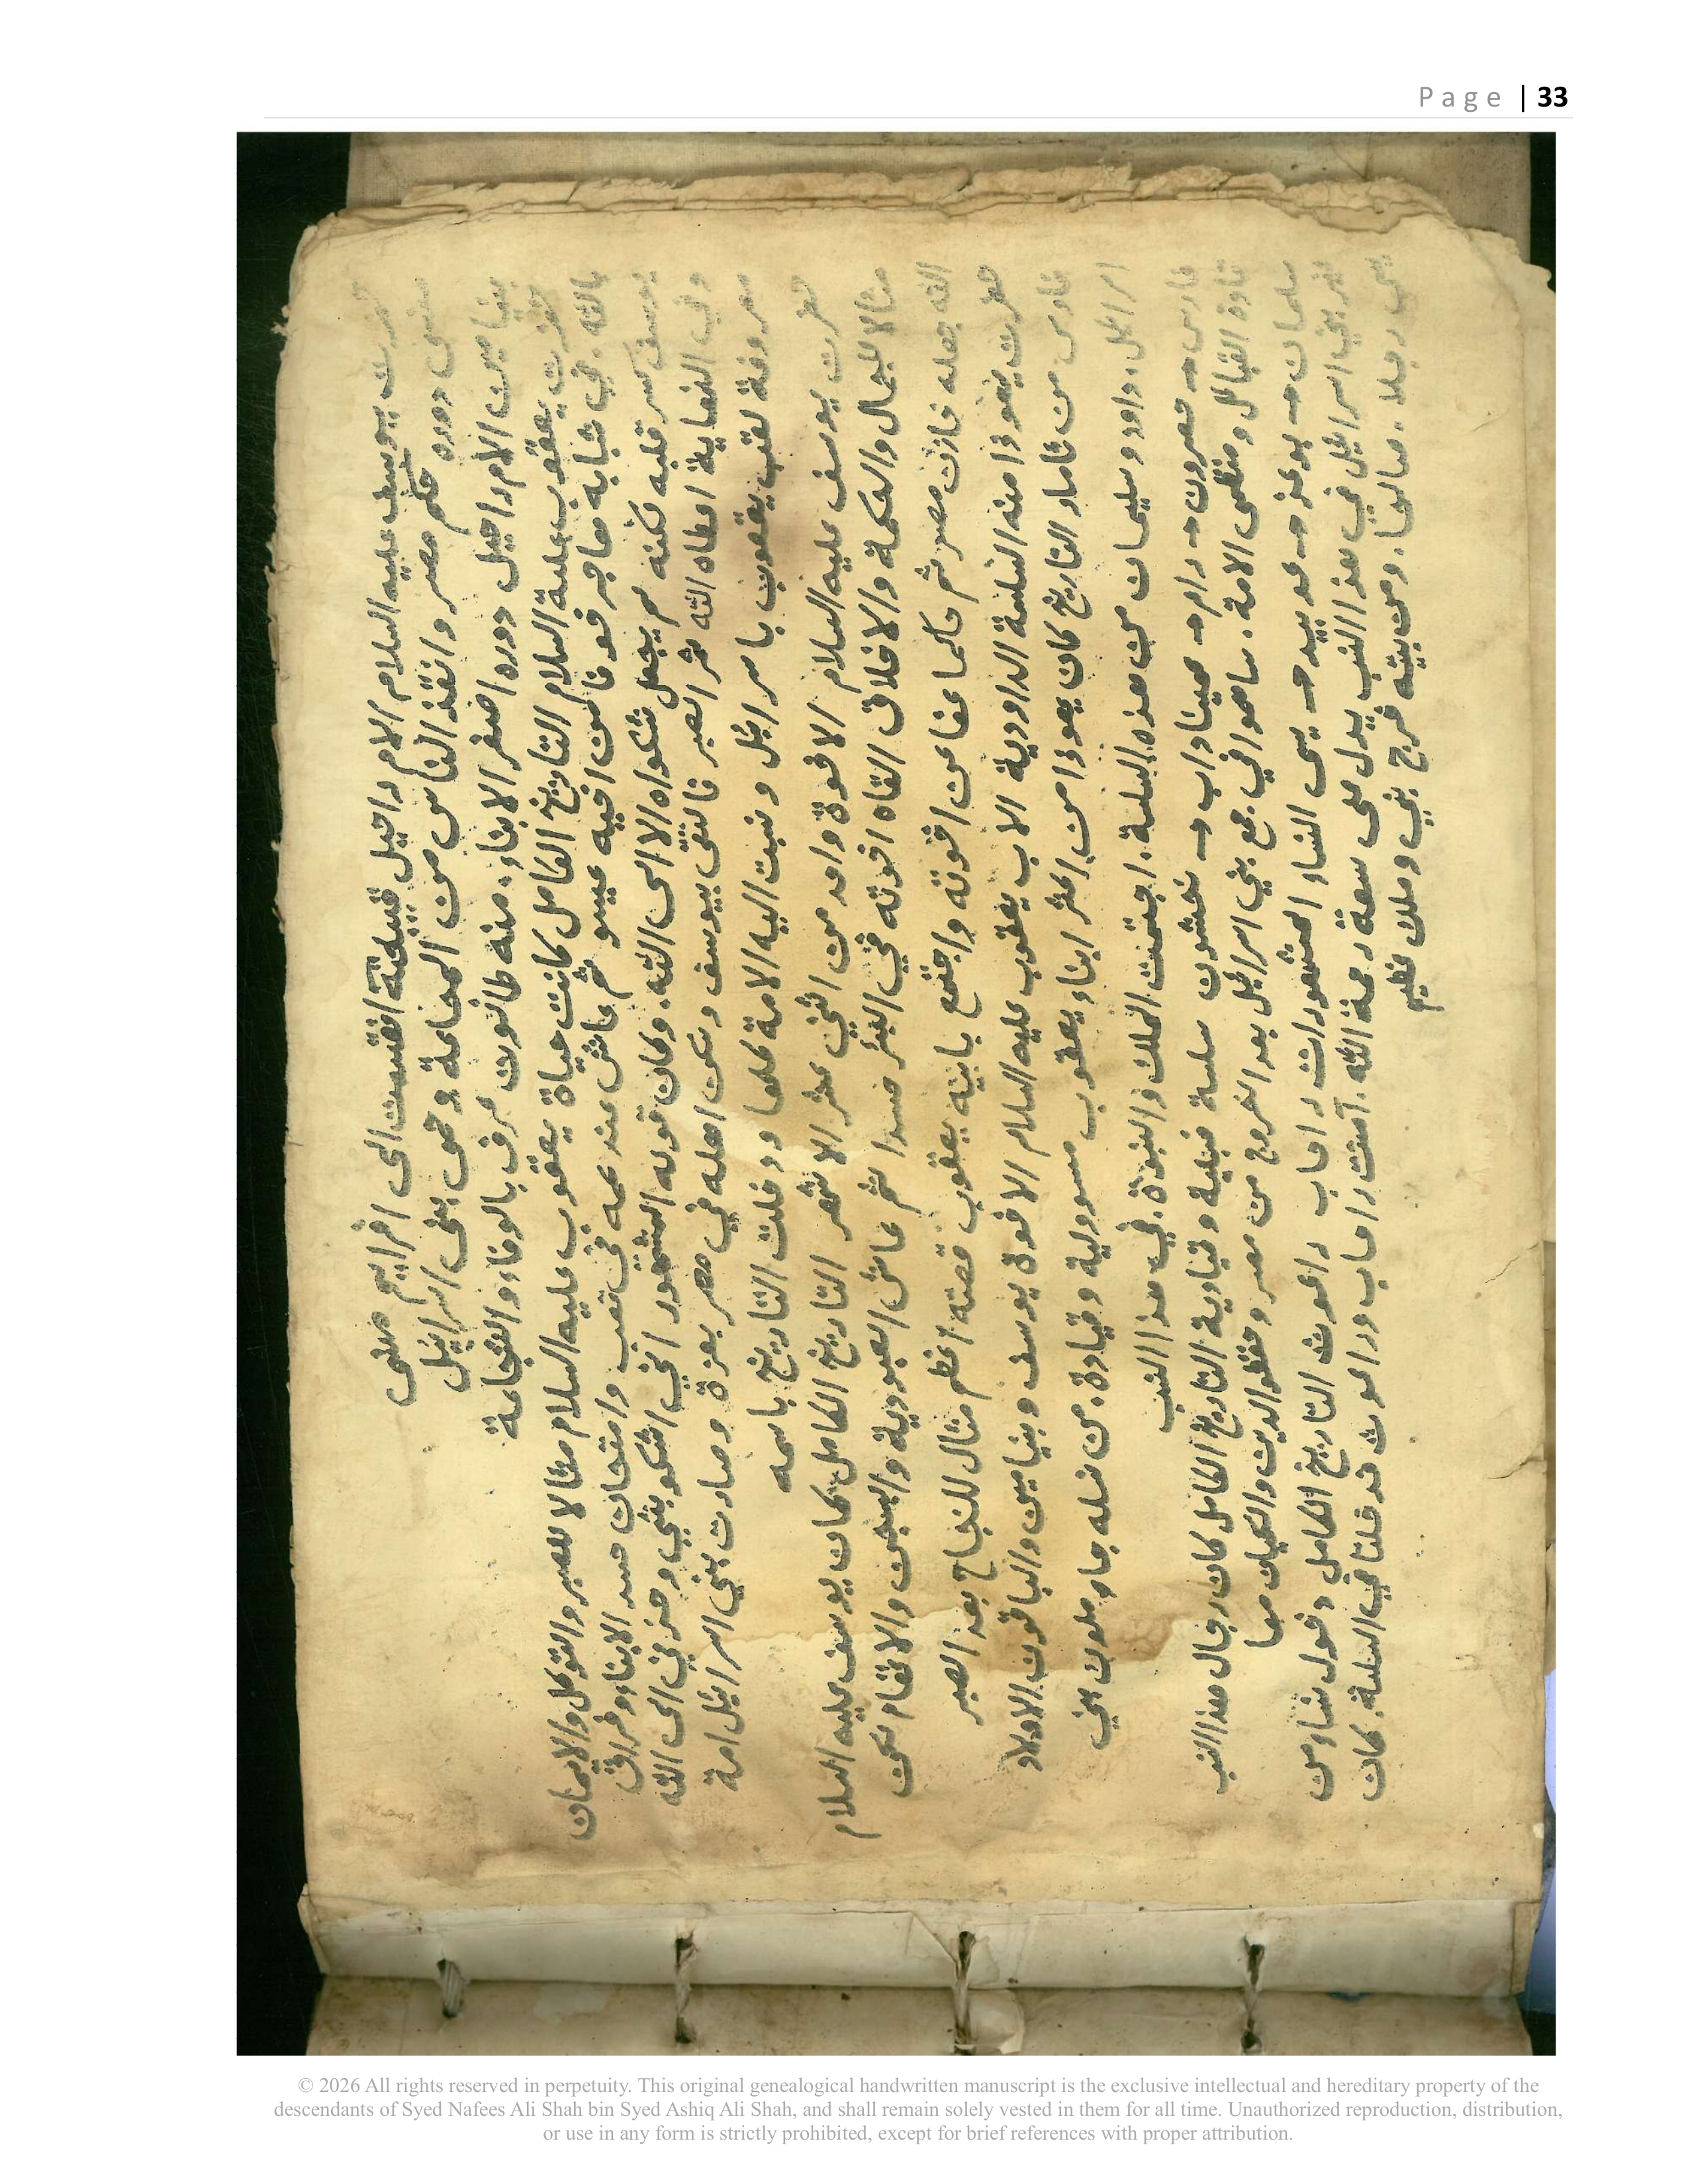 Page | 33
حضرت يوسف عليه السلام الام راحيل قبيلته انقسمت الى افرايم منسى
منسى دوره حكم مصر وانقذ الناس من المجاعة وحمى بني اسرائيل
بنيامين الام راحيل دوره اصغر الابناء. منه طالوت عرف بالوفاء والشجاعة
حضرت يعقوب علية السلام التاريخ الكامل كانت حياة يعقوب عليه السلام مثالا للصبر والتوكل والايمان
بالله. في شبابه هاجر خوفا من اخيه عيسو ثم عاش عند عمه في تعب وامتحان حسد الابناء وفراق
يوسف كسر قلبه لكنه لم يجعل شكواه الا الى الله. وكان قوله المشهور اني اشكو بثي وحزني الى الله
وفي النهاية اعطاه الله ثمر الصبر فالتقى بيوسف وسكن اهله في مصر بعزة وصارت بني اسرائيل امة
معروفة لقب يعقوب باسرائيل ونسبت اليه الامة كلها ودخلت التاريخ باسمه
حضرت يوسف عليه السلام الاخوة واحد من اثني عشر الاشهر التاريخ الكامل كان يوسف عليه السلام
مثالا للجمال والحكمة والاخلاق القاه اخوته في البئر حسدا ثم عاش العبودية والسجن والاتهام لكن
الله جعله خازن مصر ثم حاكما عفا عن اخوته واجتمع بابيه يعقوب قصته اعظم مثال للنجاح بعد الصبر
حضرت يهوذا منه السلسة الداوودية الاب يعقوب عليه السلام الاخوة يوسف وبنيامين والباقون الاولاد
فارص من تامار التاريخ كان يهوذا من اكثر ابناء يعقوب مسوولية وقيادة. من نسله جاء ملوك بني
اسرائيل. داود وسليمان من هذه السلسة. اجتمعت الملك والنبوة في هذا النسب
فارص → حصرون → رام → عميناداب → نحشون سلسة قبلية وقيادية التاريخ الكامل كان رجال هذا النسب
قادة القبائل ومنظمي الامة. ساهموا في جمع بني اسرائيل بعد الخروج من مصر وحفظو الدين والكيان معا
سلمان → بوعز → عوبيد → يسى النساء المشهورات راحاب راعوث التاريخ الكامل دخول نساء من
غير بني اسرائيل في هذا النسب يدل على سعة رحمة الله. آمنت راحاب وراعوث فدخلتا في السلسة. كان
يسى رجلا. صالحا. ومن بيته خرج نبي وملك عظيم
© 2026 All rights reserved in perpetuity. This original genealogical handwritten manuscript is the exclusive intellectual and hereditary property of the
descendants of Syed Nafees Ali Shah bin Syed Ashiq Ali Shah, and shall remain solely vested in them for all time. Unauthorized reproduction, distribution,
or use in any form is strictly prohibited, except for brief references with proper attribution.